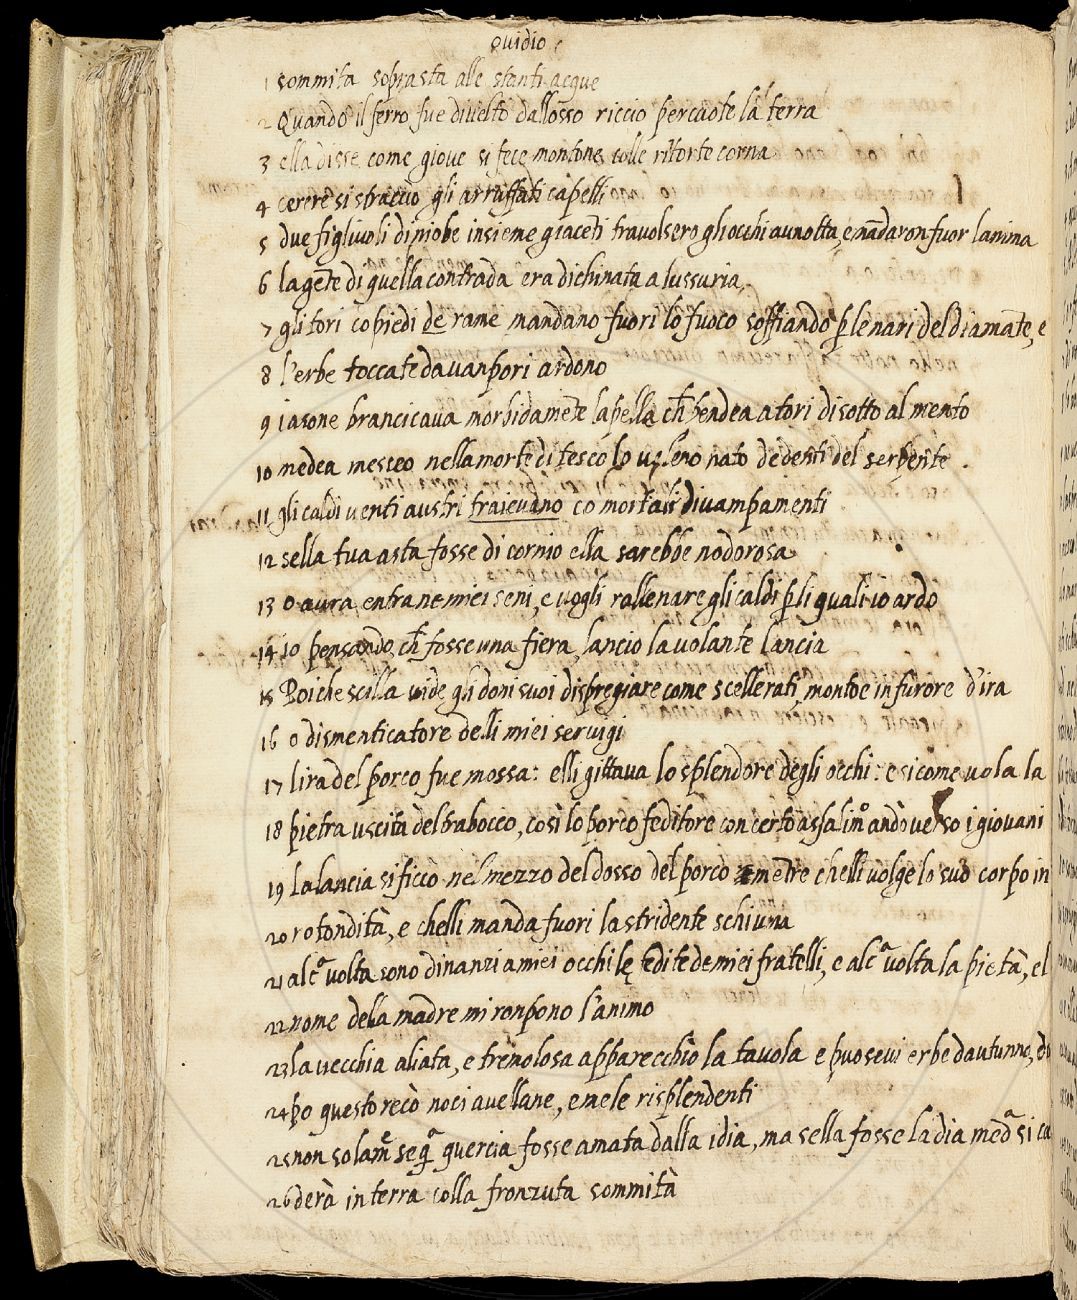 ovidio
1 sommita soprasta alle stanti acque
2 Quando il ferro fue divelto dallosso riccio percuote la terra
3 ella disse come giove si fece montone colle ritorte corna
4 cerere si straccio gli arruffati capelli
5 due figlivoli di niobe insieme giaceti travolsero gli occhi aunotta, e mādaron fuor lanima
6 la gēte di quella contrada era dichinata a lussuria,
7 gli tori co piedi de rame mandano fuori lo fuoco soffiando p le nari del diamāte, e
8 l'erbe toccate da vanpori ardono
9 iasone brancicava morbidamēte la pelle ch̄ pendea a tori di sotto al mento
10 medea mesceo nella morte di teseo lo veleno nato de denti del serpente.
11 gli caldi venti austri traievano co mortali divampamenti
12 sella tua asta fosse di cornio ella sarebbe nodorosa
13 o aura, entra ne miei seni, e vogli rallenare gli caldi p li quali io ardo
14 io pensando, ch̄ fosse una fiera, lancio la volante lancia
15 Poiche scilla vide gli doni suoi dispregiare come scellerati, montoe in furore d'ira
16 o dismenticatore delli miei servigi
17 lira del porco fue mossa: elli gittava lo splendore degli occhi: e si come vola la
18 pietra uscita del trabocco, così lo porco feditore con certo assalim̊ andò verso i giovani
19 La lancia si ficcò nel mezzo del dosso del porco e mētre chelli volge lo suo corpo in
20 rotondità, e chelli manda fuori la stridente schiuma
21 alcᵃ volta sono dinanzi a miei occhi le fedite de miei fratelli, e alcᵃ volta la pietà, el
22 nome della madre mi ronpono l'animo
23 la vecchia aliata, e tremolosa apparecchiò la tavola e puosevi erbe dautunno, do
24 po questo recò noci avellane, e mele risplendenti
25 non solamᵉ se qᵃ quercia fosse amata dalla idia, ma sella fosse la dia medᵃ si ca
26 derà in terra colla fronzuta sommità